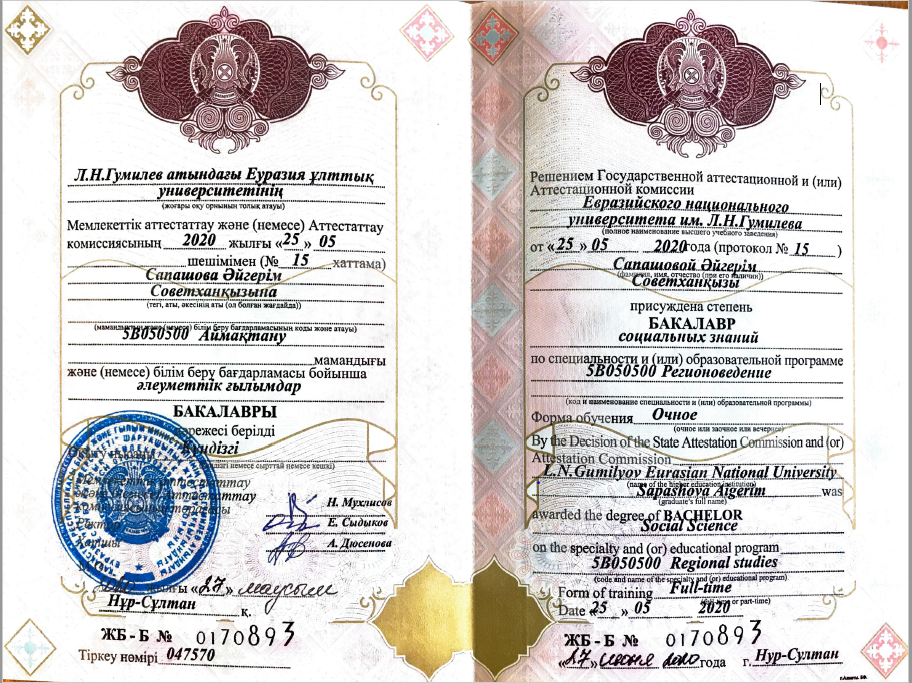 Л.Н.Гумилев атындағы Еуразия ұлттық
университетінің
(жоғары оқу орнының толық атауы)
Мемлекеттік аттестаттау және (немесе) Аттестаттау
комиссиясының 2020 жылғы «25» 05
шешімімен (№ 15 хаттама)
Сапашова Әйгерім
Советханқызына
(тегі, аты, әкесінің аты (ол болған жағдайда))
(мамандықтың және (немесе) білім беру бағдарламасының коды және атауы)
5B050500 Аймақтану
мамандығы
және (немесе) білім беру бағдарламасы бойынша
әлеуметтік ғылымдар
БАКАЛАВРЫ
дәрежесі берілді
Күндізгі
Мемлекеттік аттестаттау
және (немесе) аттестаттау
Н. Мухлисов
Е. Сыдыков
А. Дюсенова
«27» маусым
Нұр-Султан қ.
ЖБ - Б № 0170893
Тіркеу нөмірі 047570
Решением Государственной аттестационной и (или)
Аттестационной комиссии
Евразийского национального
университета им. Л.Н.Гумилева
(полное наименование высшего учебного заведения)
от «25» 05 2020года (протокол № 15 )
Сапашовой Әйгерім
(фамилия, имя, отчество (при его наличии))
Советханқызы
присуждена степень
БАКАЛАВР
социальных знаний
по специальности и (или) образовательной программе
5B050500 Регионоведение
(код и наименование специальности и (или) образовательной программы)
Форма обучения Очное
(очное или заочное или вечернее)
By the Decision of the State Attestation Commission and (or)
Attestation Commission
L.N.Gumilyov Eurasian National University
(name of the higher education institution)
Sapashova Aigerim was
(graduate's full name)
awarded the degree of BACHELOR
Social Science
on the specialty and (or) educational program
5B050500 Regional studies
(code and name of the specialty and (or) educational program)
Form of training Full-time
Date «25 » 05 2020 or part-time)
ЖБ - Б № 0170893
«27» июня 2020 года г. Нур-Султан